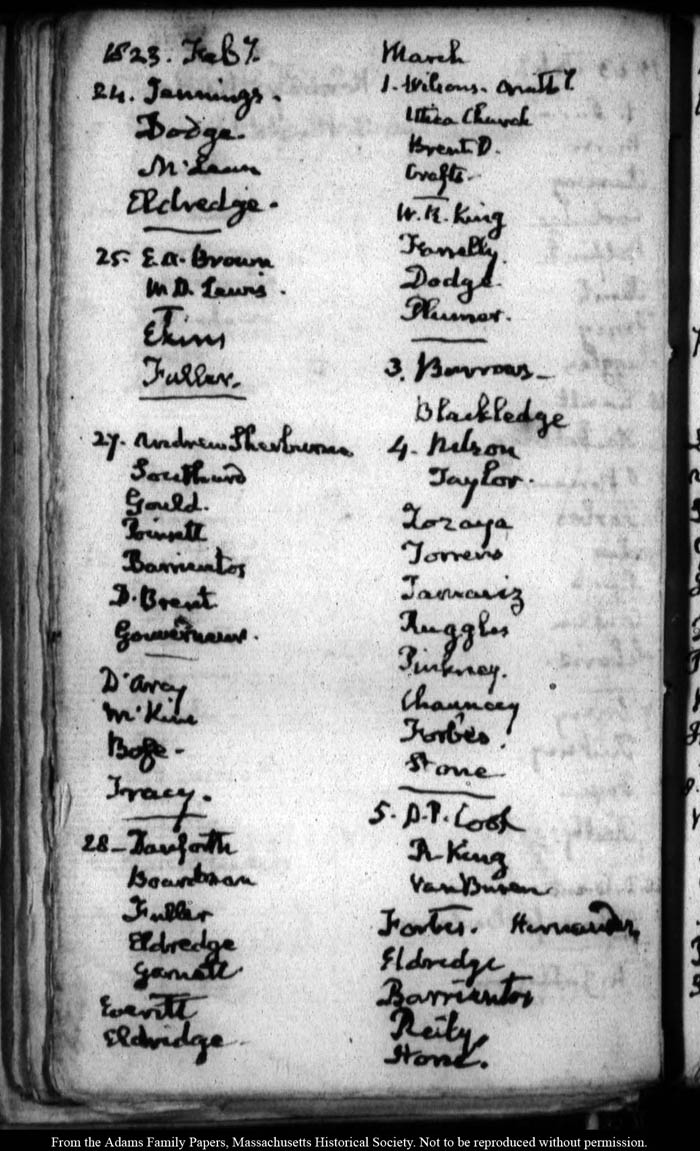 1823. Feb.y
24. Jennings.
Dodge.
McLean
Eldredge.
25. E.A. Brown
W D. Lewis.
Ekins
Fuller.
27. Andrew Sherburne
Southard
Gould.
Poinsett
Barrientos
D. Brent
Gouverneur.
D'Arcy
McKim
Boze.
Tracy.
28- Danforth
Boardman
Fuller
Eldredge
Garnett
Everett
Eldridge
March
1. Wilsons.
Utica Church
Brent D.
Crafts.
W. R. King
Farrelly.
Dodge
Plumer.
3. Burrows-
Blackledge
4. Nelson
Taylor.
Zozaya
Torrens
Ruggles
Pinkney.
Chauncey
Forbes.
Stone
5. D.P. Cook
R King
Van Buren
Forbes. Hernandez
Eldredge
Barrientos
Reily
Stone.
From the Adams Family Papers, Massachusetts Historical Society. Not to be reproduced without permission.